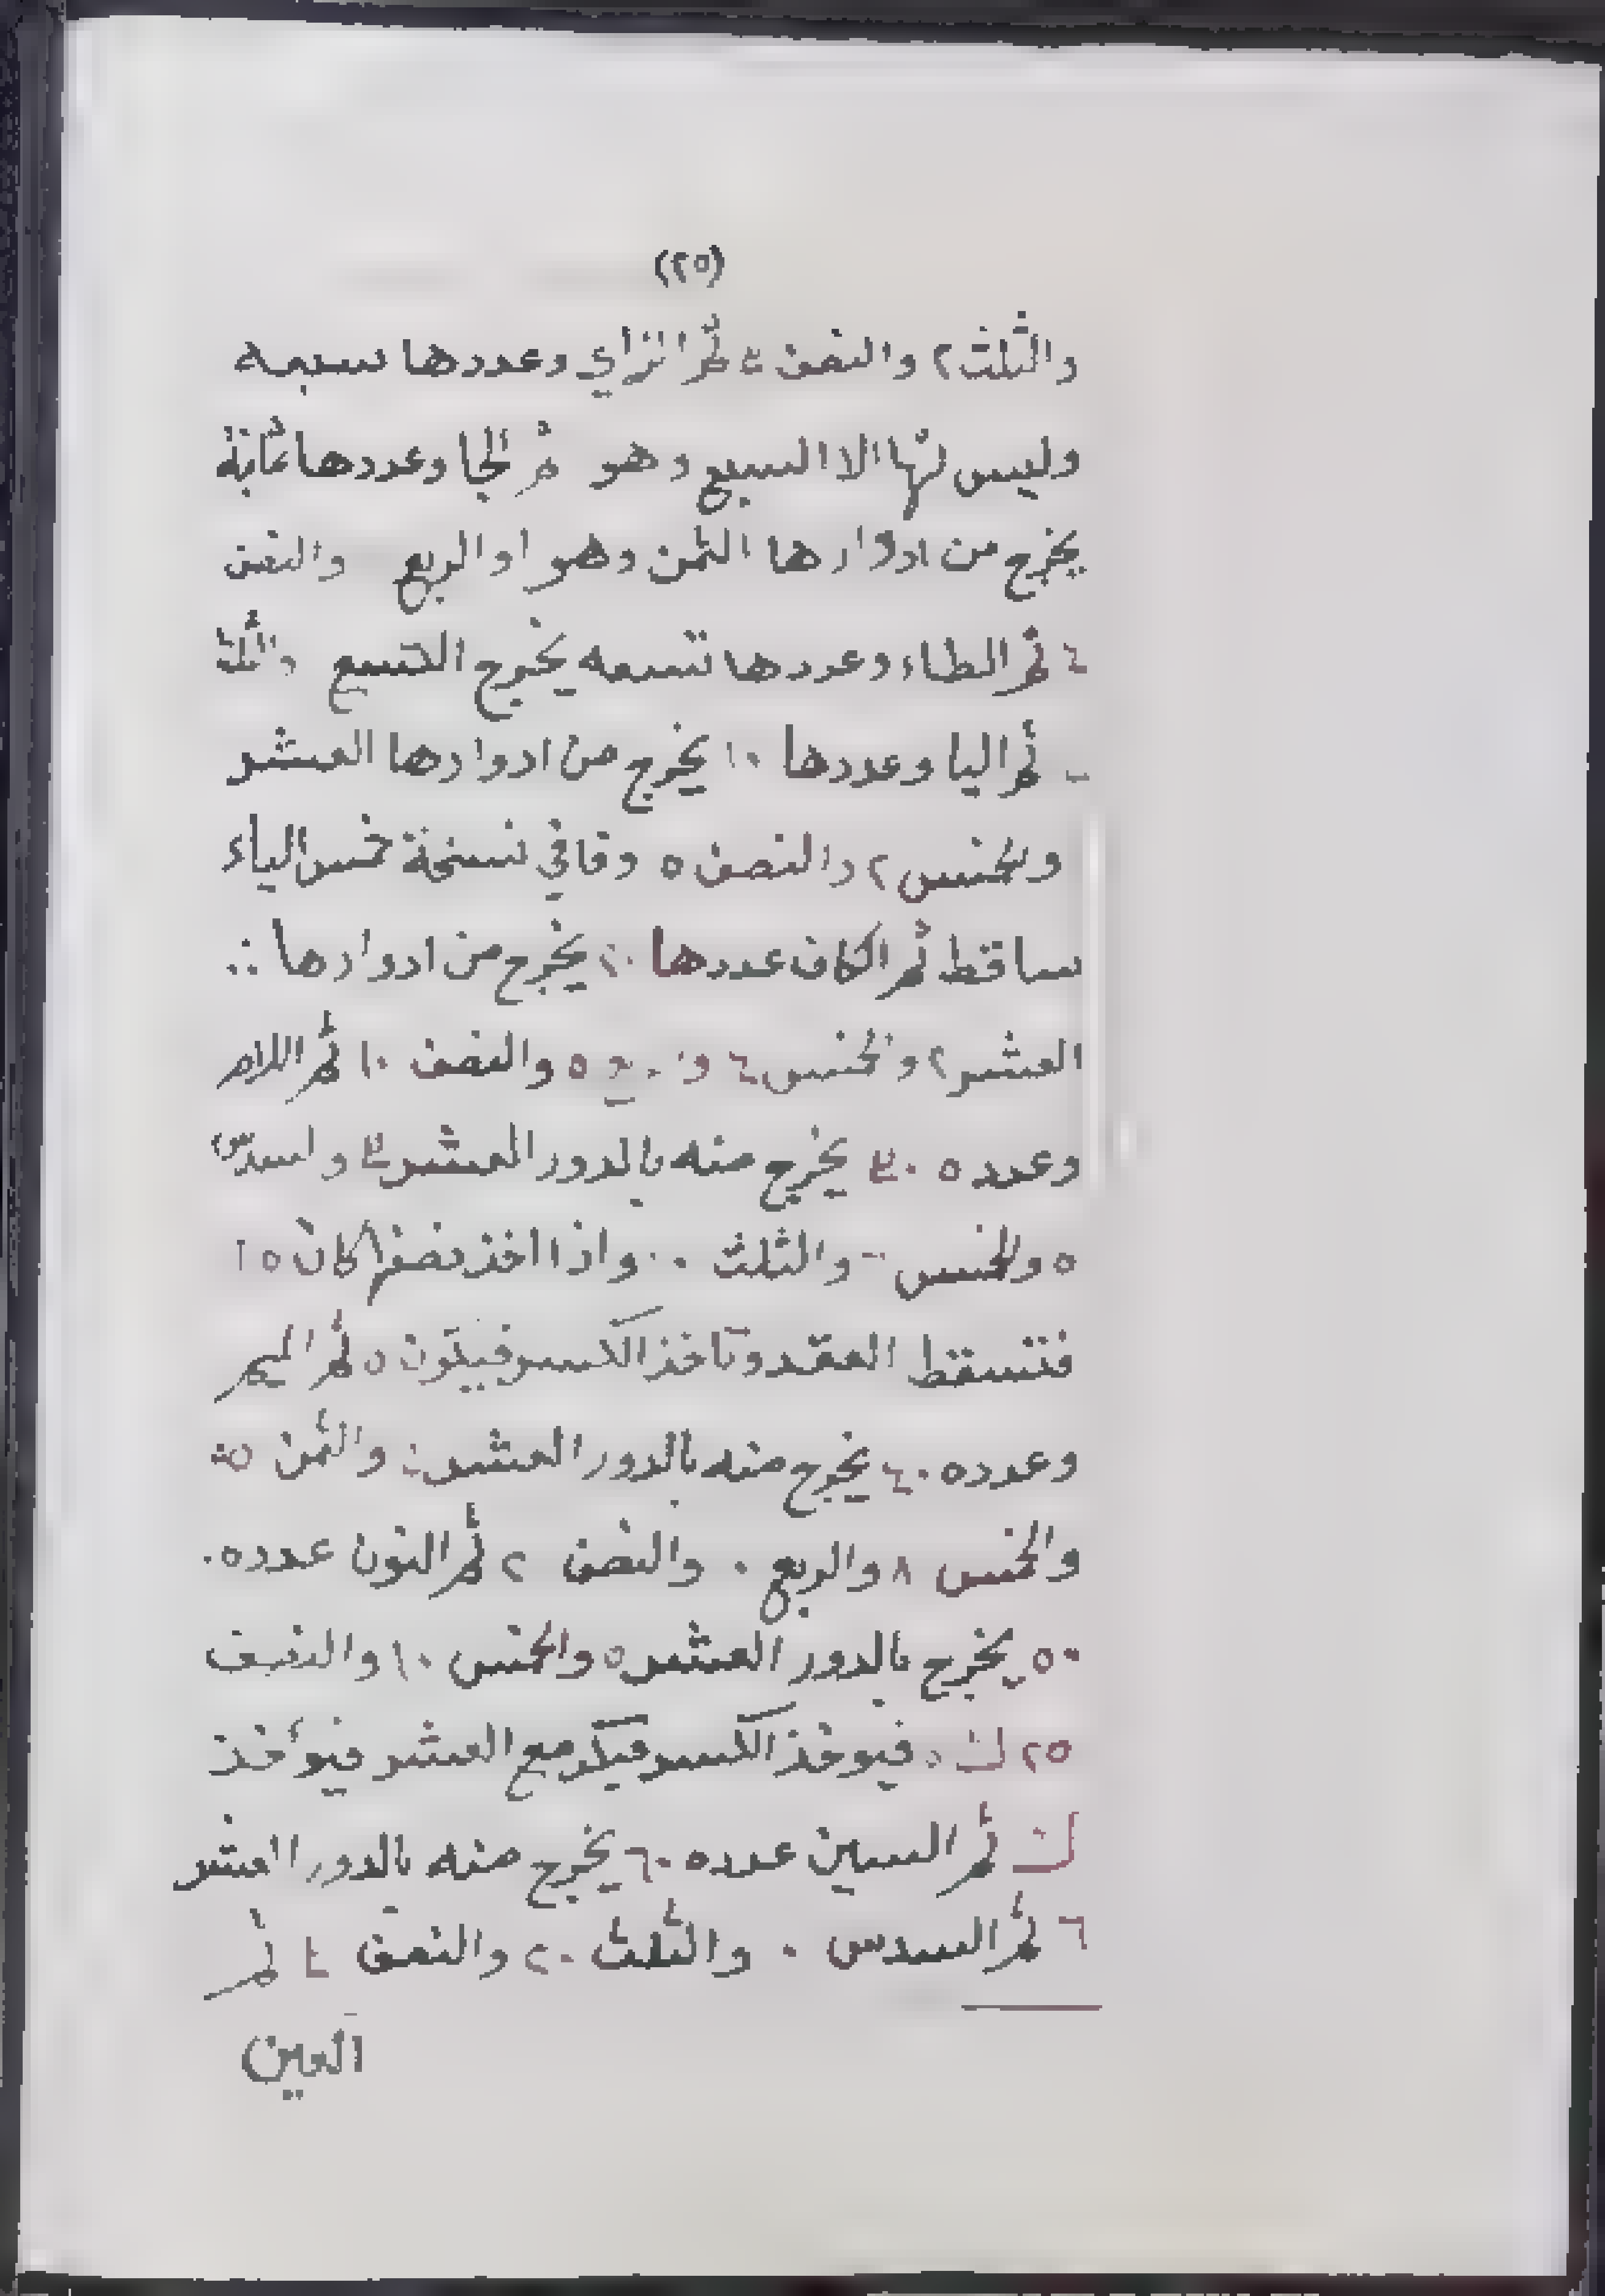 (٢٥)
والثلث ٢ والنصف ٣ ثم الزاي وعددها سبعه
وليس لها الا السبع وهو ثم الحا وعددها ثمانية
يخرج من ادوارها الثمن وهو ا والربع والنصف
٤ ثم الطاء وعددها تسعه يخرج التسع والثلث
ثم اليا وعددها ١٠ يخرج من ادوارها العشر
والخمس ٢ والنصف ٥ وفي نسخة خمس الياء
ساقط ثم الكاف عددها ٢٠ يخرج من ادوارها ∴
العشر ٢ والخمس ٤ ٥ والنصف ١٠ ثم اللام
وعدده ٣٠ يخرج منه بالدور العشر ٣ والسدس
٥ والخمس والثلث واذا اخذ نصفها كان ١٥
فتسقط العقد وتاخذ الكسر فيكون ٥ ثم الميم
وعدده ٤٠ يخرج منه بالدور العشر والثمن ٥
والخمس ٨ والربع ٠ والنصف ٢ ثم النون عدده
٥٠ يخرج بالدور العشر ٥ والخمس ١٠ والنصف
٢٥ فيوخذ الكسر فيكرر مع العشر فيؤخذ
ثم السين عدده ٦٠ يخرج منه بالدور العشر
٦ ثم السدس ٠ والثلث ٢٠ والنصف ثم
العين